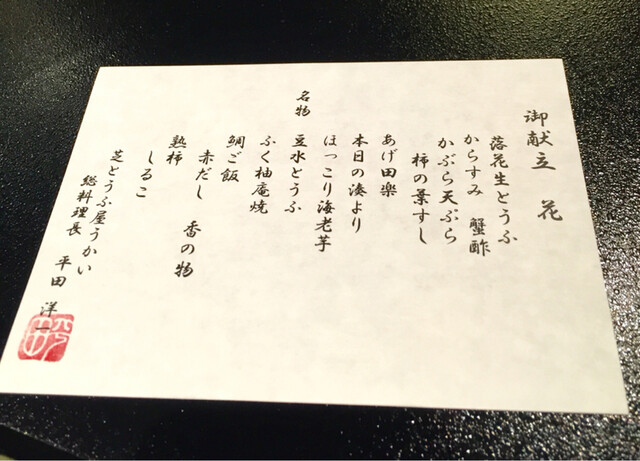 御献立 花
落花生とうふ
からすみ 蟹酢
かぶら天ぷら
柿の葉すし
あげ田楽
本日の湊より
ほっこり海老芋
名物 豆水とうふ
ふく柚庵焼
鯛ご飯
赤だし 香の物
熟柿
しるこ
芝とうふ屋うかい
総料理長 平田 洋一